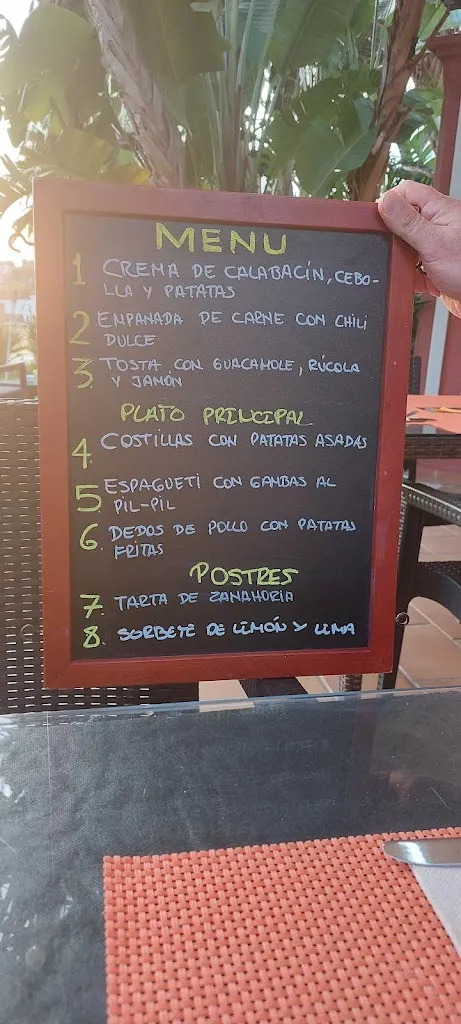 MENU
1 CREMA DE CALABACÍN, CEBO-
LLA Y PATATAS
2 EMPANADA DE CARNE CON CHILI
DULCE
3 TOSTA CON GUACAMOLE, RÚCOLA
Y JAMÓN
PLATO PRINCIPAL
4 COSTILLAS CON PATATAS ASADAS
5 ESPAGUETI CON GAMBAS AL
PIL-PIL
6 DEDOS DE POLLO CON PATATAS
FRITAS
POSTRES
7 TARTA DE ZANAHORIA
8 SORBETE DE LIMÓN Y LIMA